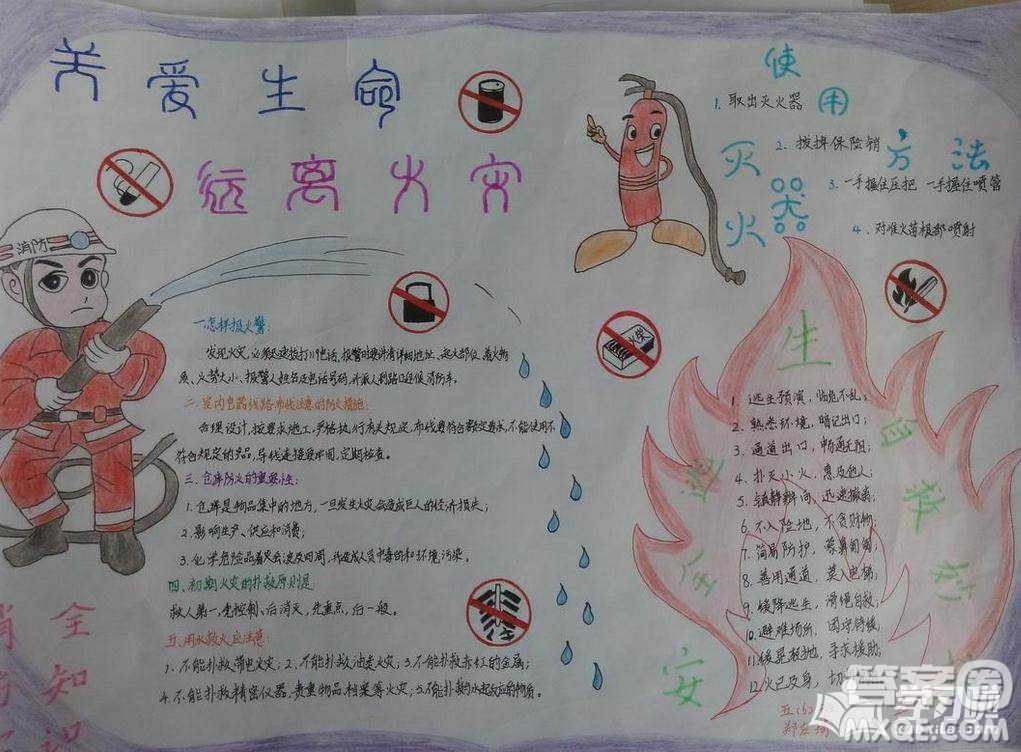 关爱生命
远离火灾
消防
使用
灭火器
方法
1. 取出灭火器
2. 拔掉保险销
3. 一手握住压把 一手握住喷管
4. 对准火苗根部喷射
火柴
一.怎样报火警:
发现火灾,必须迅速拨打119电话,报警时要讲清详细地址、起火部位、着火物
质、火势大小、报警人姓名及电话号码,并派人到路口迎候消防车。
二.室内电器线路布线注意的防火措施:
合理设计,按要求施工,严格执行有关规定,布线要符合额定要求,不能使用不
符合规定的产品,导线连接要牢固,定期检查。
三.仓库防火的重要性:
1.仓库是物品集中的地方,一旦发生火灾会造成巨大的经济损失;
2.影响生产、供应和消费;
3.化学危险品着火会波及四周,并造成人员中毒伤和环境污染。
四.初期火灾的扑救原则是
救人第一,先控制,后消灭,先重点,后一般。
五.用水救火应注意:
1.不能扑救带电火灾;2.不能扑救油类火灾;3.不能扑救赤红的金属;
4.不能扑救精密仪器,贵重物品,档案等火灾;5.不能扑救与水起反应的物质。
安全逃生自救
1. 逃生预演,临危不乱;
2. 熟悉环境,暗记出口;
3. 通道出口,畅通无阻;
4. 扑灭小火,惠及他人;
5. 镇静辨向,迅速撤离;
6. 不入险地,不贪财物;
7. 简易防护,蒙鼻匍匐;
8. 善用通道,莫入电梯;
9. 缓降逃生,滑绳自救;
10. 避难场所,固守待援;
11. 缓晃轻抛,寻求援助;
12. 火已及身,切
全
知
五(6)
答案圈
MXQE.COM